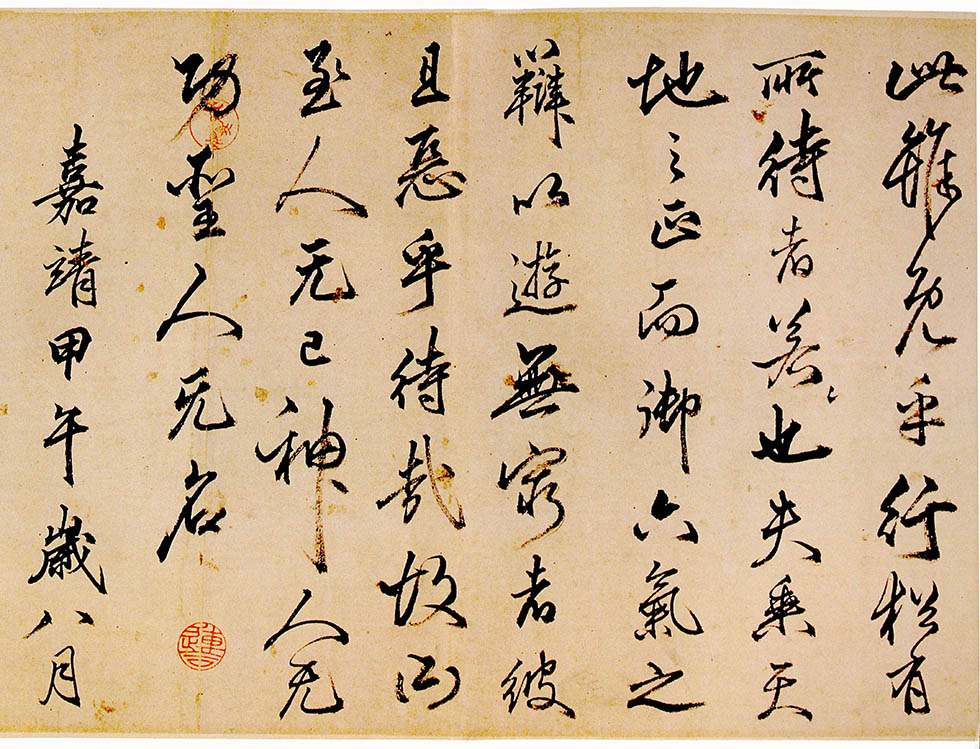 此雖免乎行猶有
所待者若也夫乘天
地之正而御六氣之
辯以遊無窮者彼
且惡乎待哉故曰
至人无已神人无
功聖人无名
嘉靖甲午歲八月